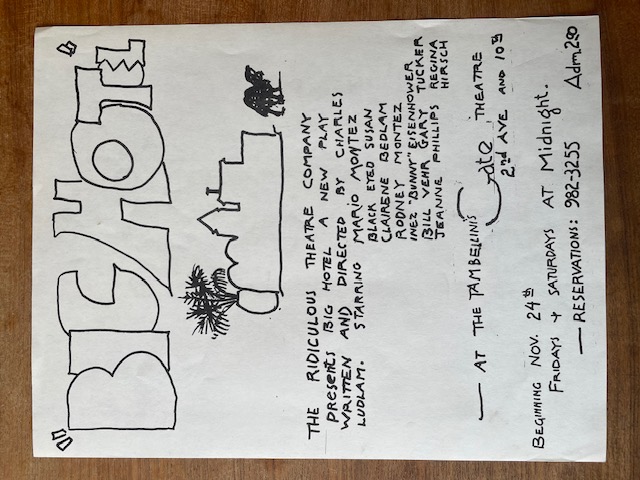 BIG HOTEL
THE RIDICULOUS THEATRE COMPANY
presents BIG HOTEL A NEW PLAY
WRITTEN AND DIRECTED BY CHARLES
LUDLAM. STARRING MARIO MONTEZ
BLACK EYED SUSAN
CLAIRENE BEDLAM
RODNEY MONTEZ
INEZ "BUNNY" EISENHOWER
BILL VEHR GARY TUCKER
JEANNE PHILLIPS REGINA
HIRSCH
— AT THE TAMBELLINI'S Gate THEATRE
2nd AVE AND 10th
BEGINNING NOV. 24th
FRIDAYS + SATURDAYS AT Midnight.
— RESERVATIONS: 982-3255 Adm. 2.50